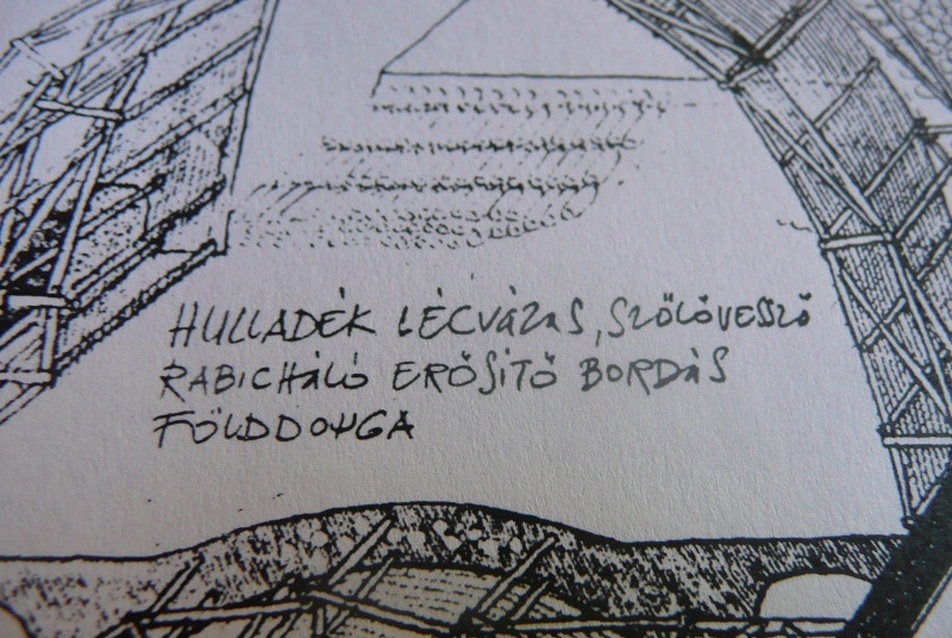 HULLADÉK LÉCVÁZAS, SZŐLŐVESSZŐ
RABICHÁLÓ ERŐSÍTŐ BORDÁS
FÖLDDONGA